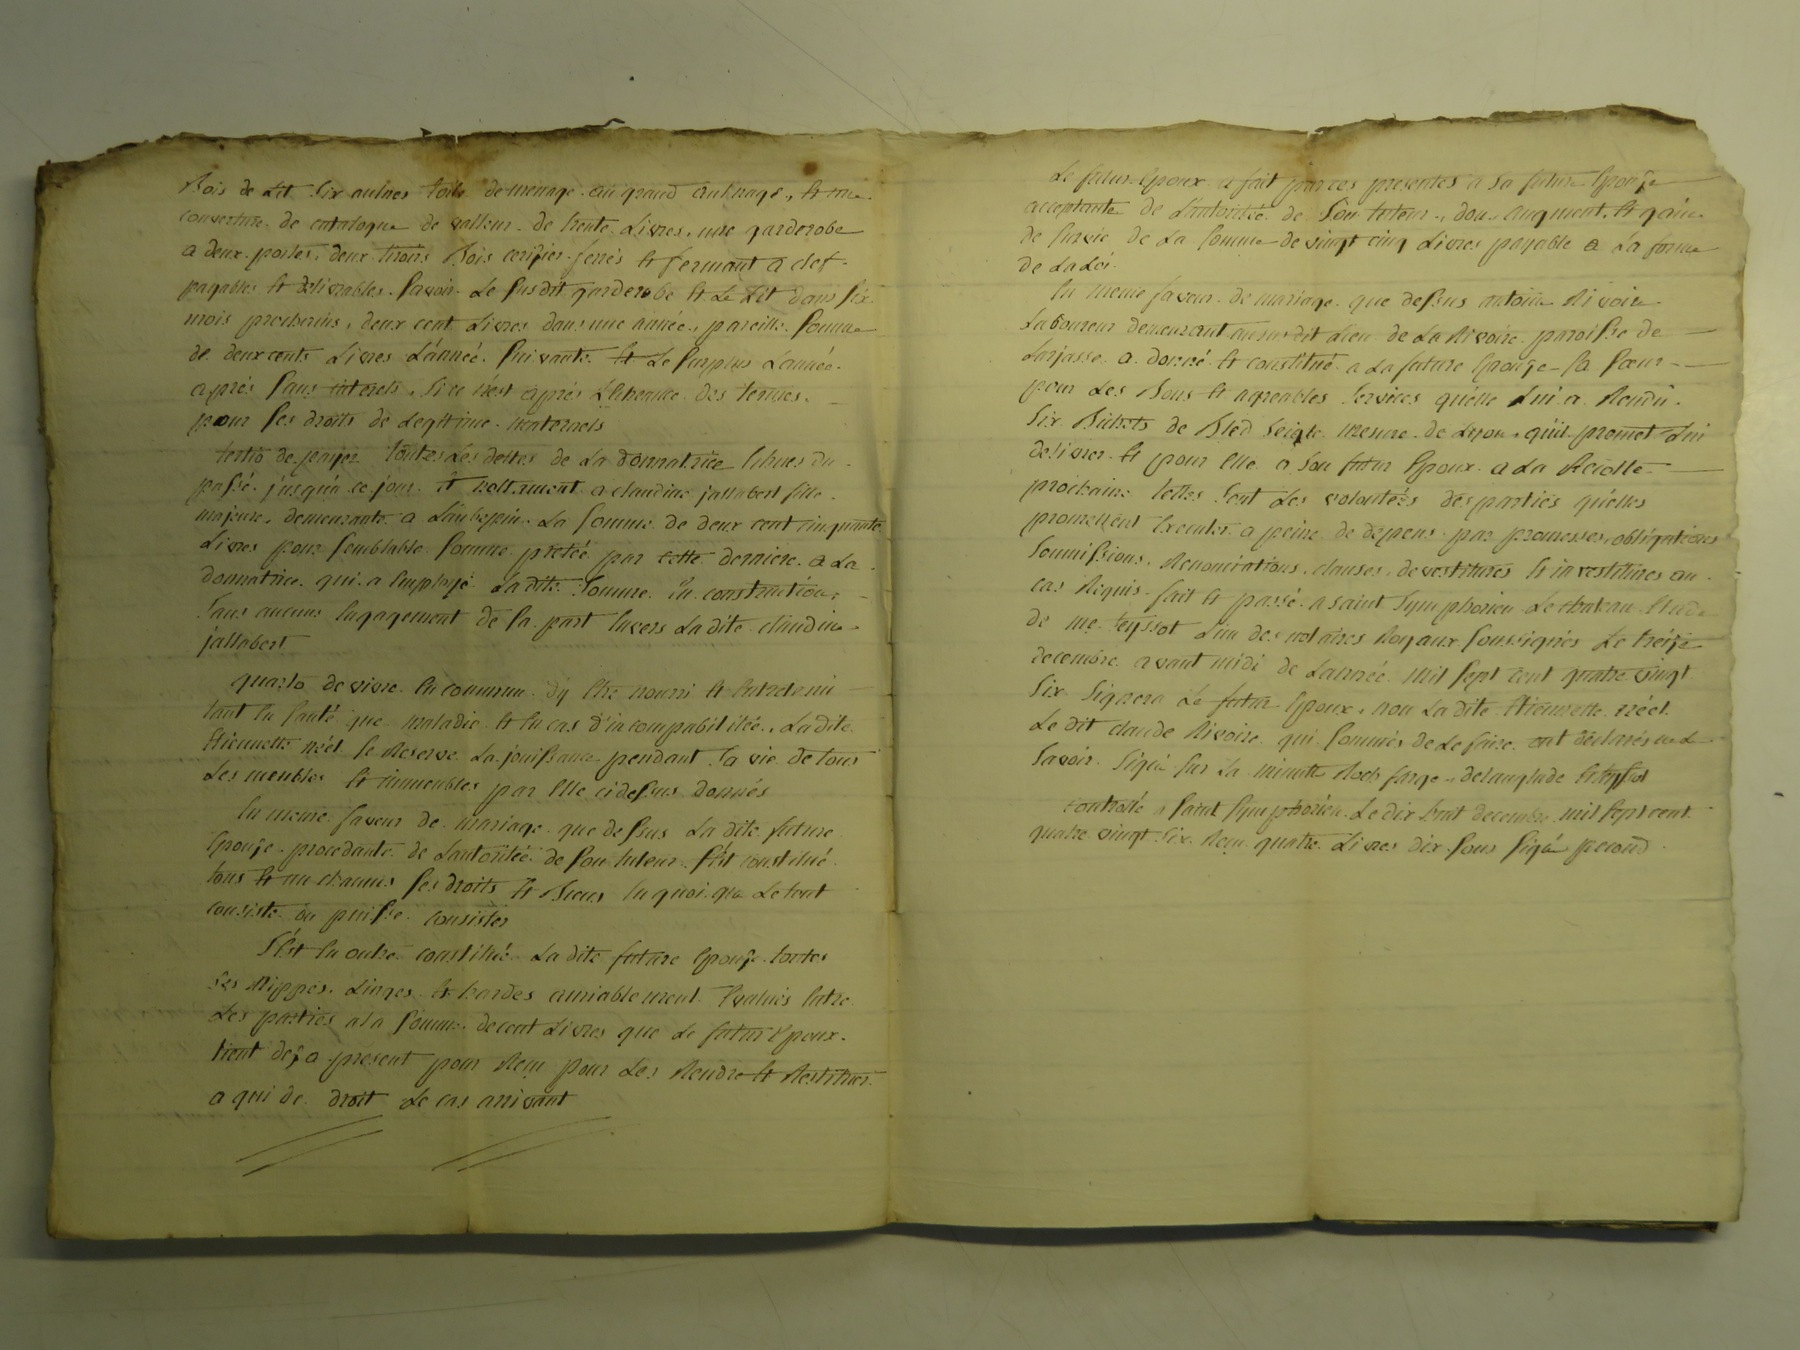 Bois de Lit six aulnes toile de menage au grand aulnage, et une
couverture de catalogne de valleur de trente Livres, une garderobe
a deux portes, deux tiroirs Bois cerisier ferrés et fermant a clef
payables et delivrables, savoir Le susdit garderobe et Le Lit dans six
mois prochains, deux cent Livres dans une année, pareille somme
de deux cents Livres L'année suivante et Le surplus L'année
après sans interets, si ce n'est après L'echeance des termes,
pour ses droits de Legitime maternels
tertio de payer toutes Les dettes de La donnatrice echues du
passé jusqu'a ce jour et nottament a claudine jallabert fille
majeure, demeurante a Laubepin La somme de deux cent cinquante
Livres pour semblable somme pretée par cette derniere a La
donnatrice qui a employé Ladite somme en constructions
sans aucuns engagement de sa part envers Ladite claudine
jallabert
quarto de vivre en commun d'y etre nourri et entretenu
tant en santé que maladie et en cas d'incompabilitée, Ladite
Etiennette néel se Reserve La jouissance pendant sa vie de tous
Les meubles et immeubles par elle cidessus donnés
En meme faveur de mariage que dessus La dite future
Epouse procedante de Lautoritée de son tuteur s'est constitué
tous et un chacuns ses droits et Biens en quoi que Le tout
consiste ou puisse consister
S'est en outre constitué La dite future Epouse toutes
ses Nippes, Linges et hardes amiablement Evalués entre
Les parties a la somme de cent Livres que Le futur Epoux
tient deja present pour Reçu pour Les Rendre et Restituer
a qui de droit Le cas arrivant
Le futur Epoux a fait par ces presentes a sa future Epouse
acceptante de L'autorité de son tuteur, don, augment, et gain
de survie de La somme de vingt cinq Livres payable a La forme
de La Loi
En meme faveur de mariage que dessus antoine Rivoire
Laboureur demeurant au susdit Lieu de La Rivoire paroisse de
Larjasse a donné et constitué a La future Epouse sa sœur
pour Les Bons et agreables services qu'elle Lui a Rendu
six Bichets de Bled seigle mesure de Lyon, qu'il promet Lui
delivrer et pour elle a son futur Epoux a La Recolte
prochaine telles sont Les volontées des parties qu'elles
promettent Executer a peine de depens par promesses, obligations
soumissions, Renonciations, clauses, devestitures et investitures au
cas Requis fait et passé a saint Symphorien Le chateau Etude
de me teyssot L'un des notaires Royaux soussignés Le treize
decembre avant midi de L'année mil sept cent quatre vingt
six signera Le futur Epoux, non La dite Etiennette néel
Le dit claude Rivoire qui sommés de Le faire ont déclarés ne Le
savoir signé sur La minute Roch farge, delanglade et teyssot
controllé a saint Symphorien Le dix huit decembre mil sept cent
quatre vingt six Reçu quatre Livres dix sous signé